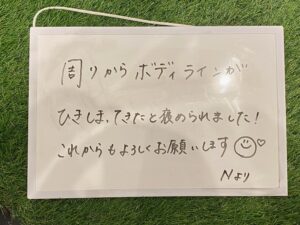 周りからボディラインが
ひきしまってきたと褒められました!
これからもよろしくお願いします☺♡
Nより